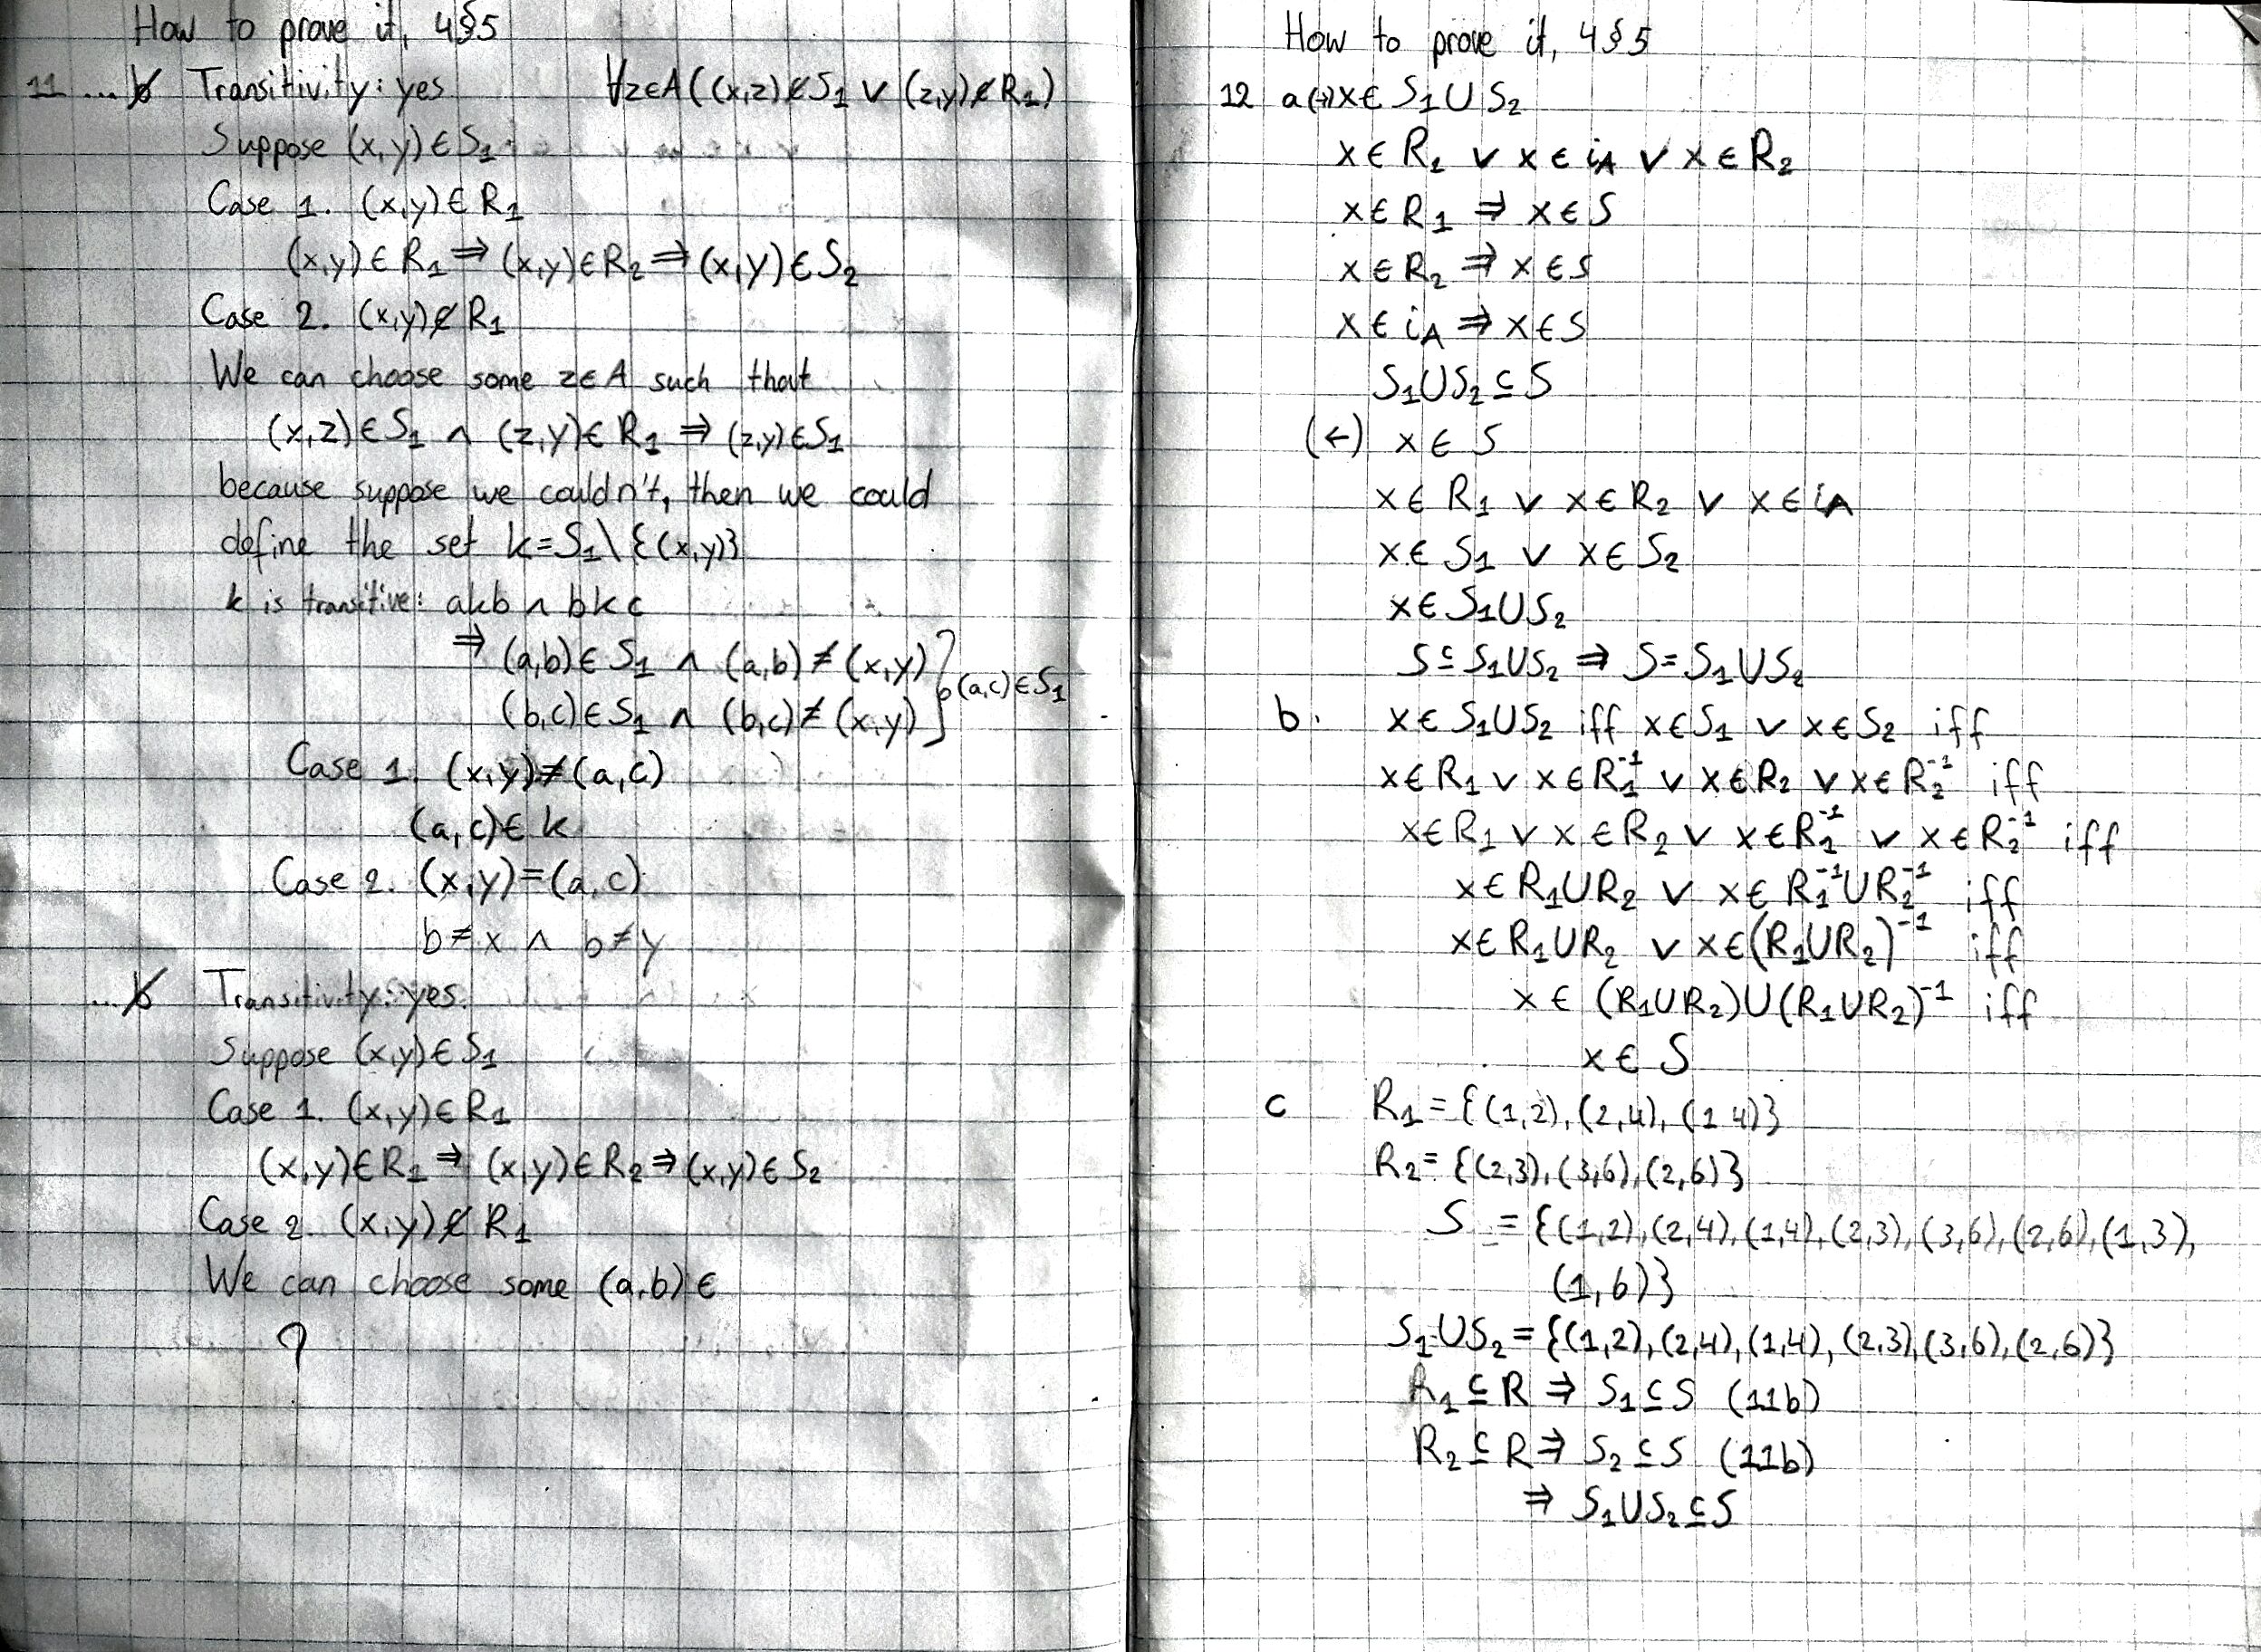 How to prove it, 4§5
11 ... b Transitivity: yes ∀z∈A((x,z)∉S₁ ∨ (z,y)∉R₁)
Suppose (x,y)∈S₁
Case 1. (x,y)∈R₁
(x,y)∈R₁ ⇒ (x,y)∈R₂ ⇒ (x,y)∈S₂
Case 2. (x,y)∉R₁
We can choose some z∈A such that
(x,z)∈S₁ ∧ (z,y)∈R₁ ⇒ (z,y)∈S₁
because suppose we couldn't, then we could
define the set k=S₁\{(x,y)}
k is transitive: akb ∧ bkc
⇒ (a,b)∈S₁ ∧ (a,b)≠(x,y)
(b,c)∈S₁ ∧ (b,c)≠(x,y)
(a,c)∈S₁
Case 1. (x,y)≠(a,c)
(a,c)∈k
Case 2. (x,y)=(a,c)
b≠x ∧ b≠y
... b Transitivity: yes.
Suppose (x,y)∈S₁
Case 1. (x,y)∈R₁
(x,y)∈R₁ ⇒ (x,y)∈R₂ ⇒ (x,y)∈S₂
Case 2. (x,y)∉R₁
We can choose some (a,b)∈
?
How to prove it, 4§5
12 a(→)x∈S₁∪S₂
x∈R₁ ∨ x∈i_A ∨ x∈R₂
x∈R₁ ⇒ x∈S
x∈R₂ ⇒ x∈S
x∈i_A ⇒ x∈S
S₁∪S₂⊆S
(←) x∈S
x∈R₁ ∨ x∈R₂ ∨ x∈i_A
x∈S₁ ∨ x∈S₂
x∈S₁∪S₂
S⊆S₁∪S₂ ⇒ S=S₁∪S₂
b. x∈S₁∪S₂ iff x∈S₁ ∨ x∈S₂ iff
x∈R₁ ∨ x∈R₁⁻¹ ∨ x∈R₂ ∨ x∈R₂⁻¹ iff
x∈R₁ ∨ x∈R₂ ∨ x∈R₁⁻¹ ∨ x∈R₂⁻¹ iff
x∈R₁∪R₂ ∨ x∈R₁⁻¹∪R₂⁻¹ iff
x∈R₁∪R₂ ∨ x∈(R₁∪R₂)⁻¹ iff
x∈(R₁∪R₂)∪(R₁∪R₂)⁻¹ iff
x∈S
c R₁={(1,2),(2,4),(1,4)}
R₂={(2,3),(3,6),(2,6)}
S={(1,2),(2,4),(1,4),(2,3),(3,6),(2,6),(1,3),
(1,6)}
S₁∪S₂={(1,2),(2,4),(1,4),(2,3),(3,6),(2,6)}
R₁⊆R ⇒ S₁⊆S (11b)
R₂⊆R ⇒ S₂⊆S (11b)
⇒ S₁∪S₂⊆S